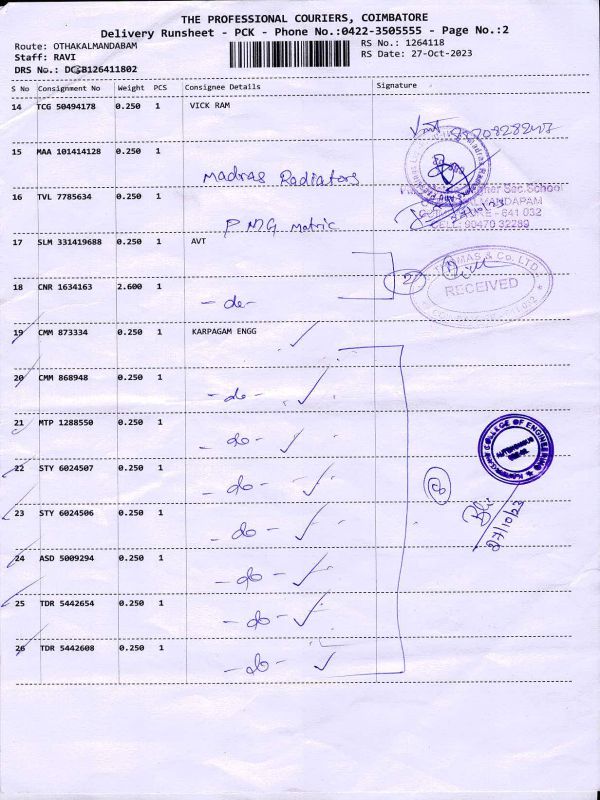 THE PROFESSIONAL COURIERS, COIMBATORE
Delivery Runsheet - PCK - Phone No.:0422-3505555 - Page No.:2
Route: OTHAKALMANDABAM
RS No.: 1264118
Staff: RAVI
RS Date: 27-Oct-2023
DRS No.: DCB126411802
S No Consignment No Weight PCS Consignee Details Signature
14 TCG 50494178 0.250 1 VICK RAM
15 MAA 101414128 0.250 1
Madras Radiators
16 TVL 7785634 0.250 1
Sec.School
641 032
CELL: 90470 32289
P.M.G Matric
17 SLM 331419688 0.250 1 AVT
& Co. LTD.
2
RECEIVED
18 CNR 1634163 2.600 1
- do -
19 CMM 873334 0.250 1 KARPAGAM ENGG
20 CMM 868948 0.250 1
- do -
21 MTP 1288550 0.250 1
- do -
COLLEGE OF ENGINEERING
AUTONOMOUS
22 STY 6024507 0.250 1
- do -
8
23 STY 6024506 0.250 1
- do -
27/10/23
24 ASD 5009294 0.250 1
- do -
25 TDR 5442654 0.250 1
- do -
26 TDR 5442608 0.250 1
- do -